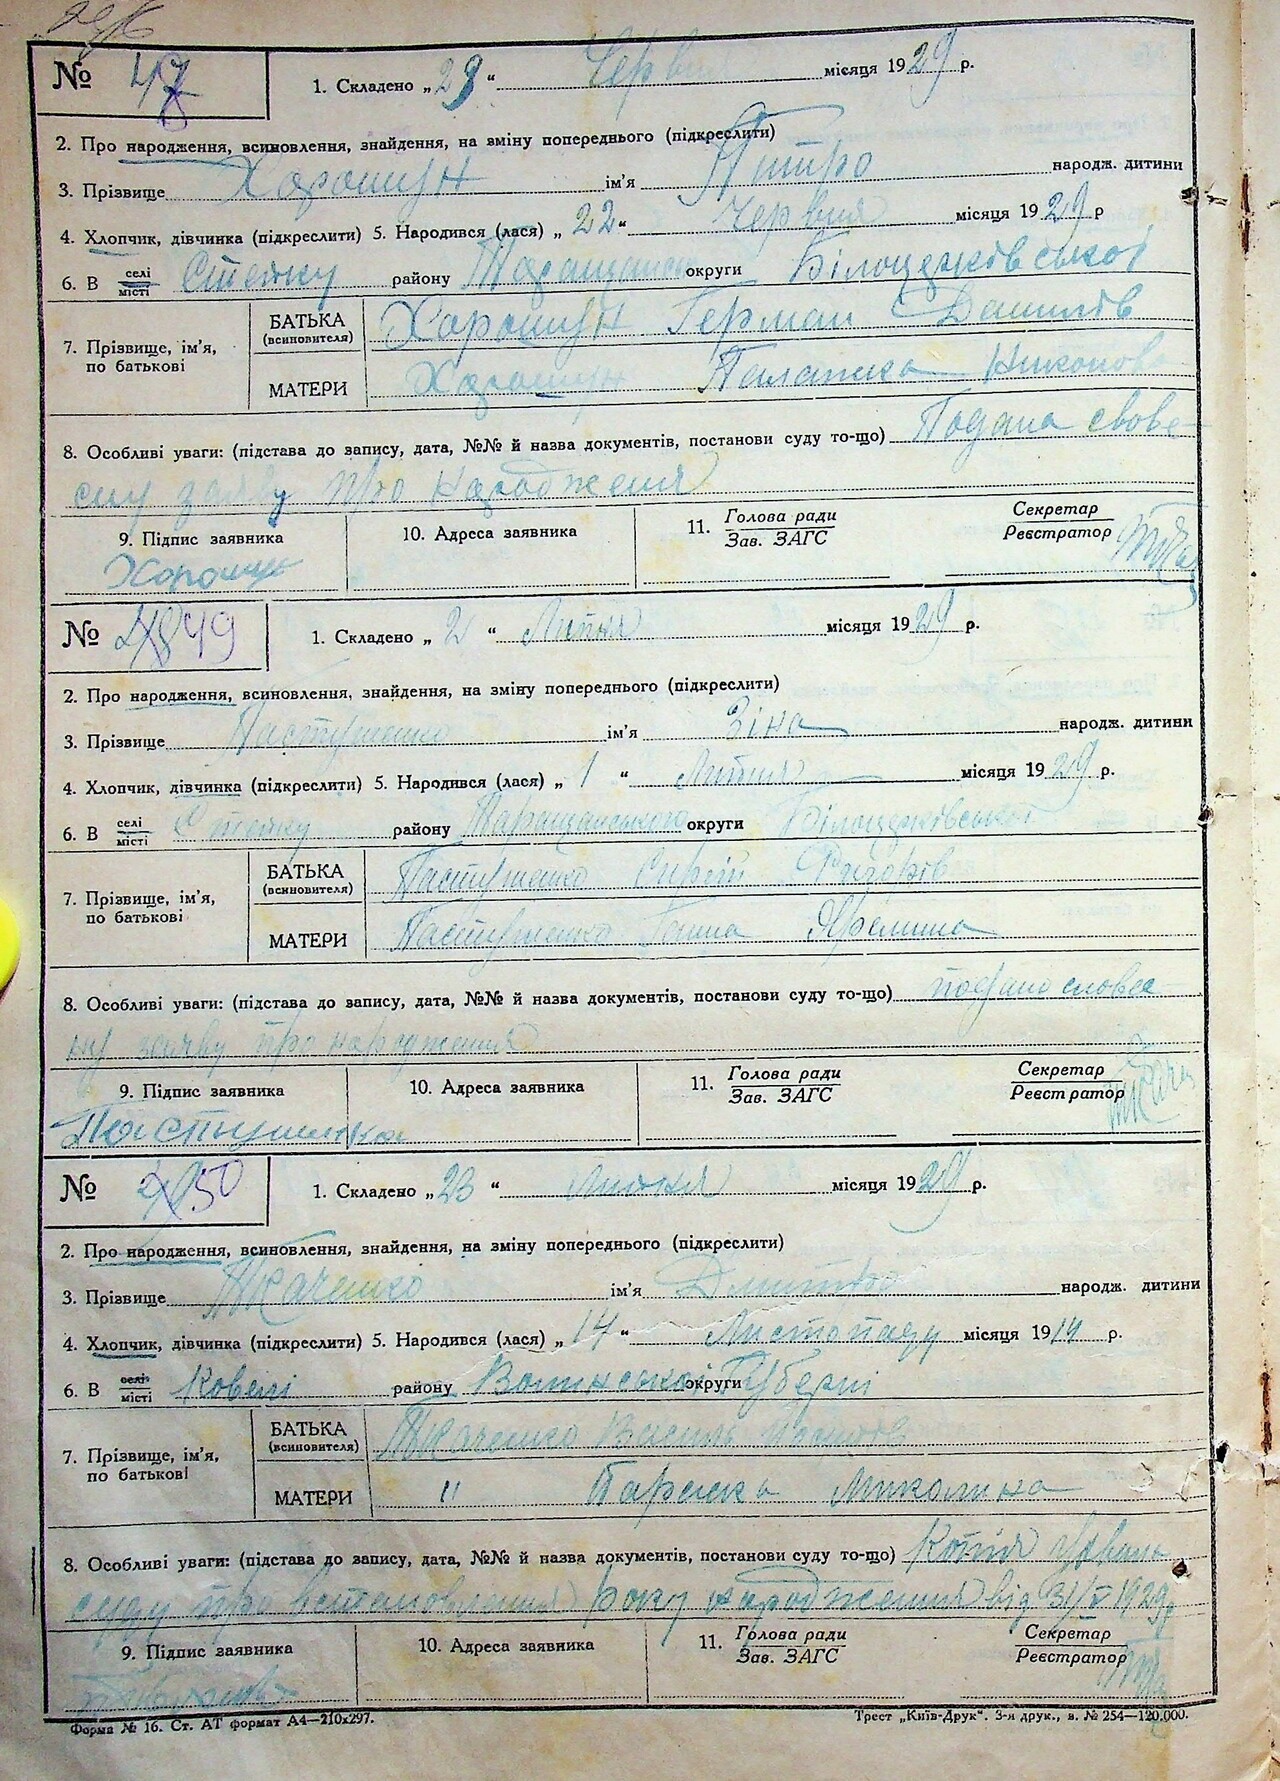 № 48
1. Складено „29“ Червня місяця 1929 р.
2. Про народження, всиновлення, знайдення, на зміну попереднього (підкреслити)
3. Прізвище Хорошун ім'я Питро народж. дитини
4. Хлопчик, дівчинка (підкреслити) 5. Народився (лася) „22“ Червня місяця 1929 р
6. В селі місті Степку району Таращанськ округи Білоцерківської
7. Прізвище, ім'я, по батькові
БАТЬКА (всиновителя) Хорошун Герман Данилів
МАТЕРИ Хорошун Палажка Никонов
8. Особливі уваги: (підстава до запису, дата, №№ й назва документів, постанови суду то-що) Подана слове-
сну заяву про народження
9. Підпис заявника 10. Адреса заявника 11. Голова ради Зав. ЗАГС Секретар Реєстратор
Хорошун
№ 49
1. Складено „2“ Липня місяця 1929 р.
2. Про народження, всиновлення, знайдення, на зміну попереднього (підкреслити)
3. Прізвище Пастушенко ім'я Зіна народж. дитини
4. Хлопчик, дівчинка (підкреслити) 5. Народився (лася) „1“ Липня місяця 1929 р.
6. В селі місті Степку району Таращанського округи Білоцерківської
7. Прізвище, ім'я, по батькові
БАТЬКА (всиновителя) Пастушенко Сергій
МАТЕРИ Пастушенко Ганна
8. Особливі уваги: (підстава до запису, дата, №№ й назва документів, постанови суду то-що) подано словес-
ну заяву про народження
9. Підпис заявника 10. Адреса заявника 11. Голова ради Зав. ЗАГС Секретар Реєстратор
Пастушенко
№ 50
1. Складено „23“ Липня місяця 1929 р.
2. Про народження, всиновлення, знайдення, на зміну попереднього (підкреслити)
3. Прізвище Ткаченко ім'я Дмитро народж. дитини
4. Хлопчик, дівчинка (підкреслити) 5. Народився (лася) „14“ Листопаду місяця 1914 р.
6. В селі місті Ковелі району Волинської округи Губерні
7. Прізвище, ім'я, по батькові
БАТЬКА (всиновителя) Ткаченко Василь
МАТЕРИ " Параска Миколина
8. Особливі уваги: (підстава до запису, дата, №№ й назва документів, постанови суду то-що) Копія
суду про встановлення року народження від 31/V 1929р
9. Підпис заявника 10. Адреса заявника 11. Голова ради Зав. ЗАГС Секретар Реєстратор
Форма № 16. Ст. АТ формат А4—210x297. Трест „Київ-Друк“. 3-я друк., в. № 254—120.000.